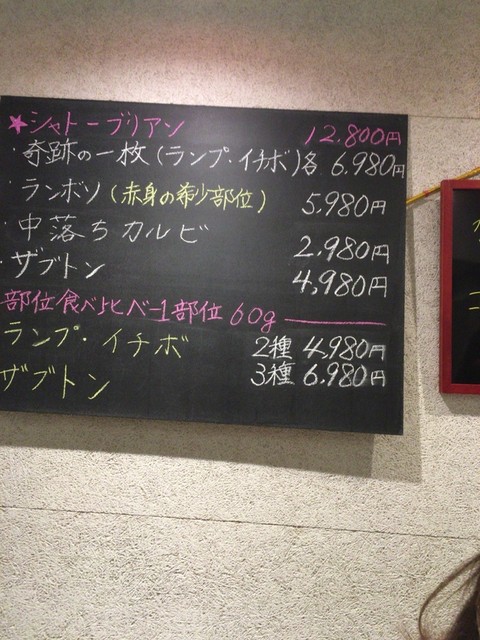 ★シャトーブリアン 12.800円
・奇跡の一枚(ランプ・イチボ)各 6.980円
・ランボソ(赤身の希少部位) 5.980円
・中落ちカルビ 2.980円
・ザブトン 4,980円
部位食べ比べー1部位60g
ランプ・イチボ 2種 4,980円
ザブトン 3種 6,980円